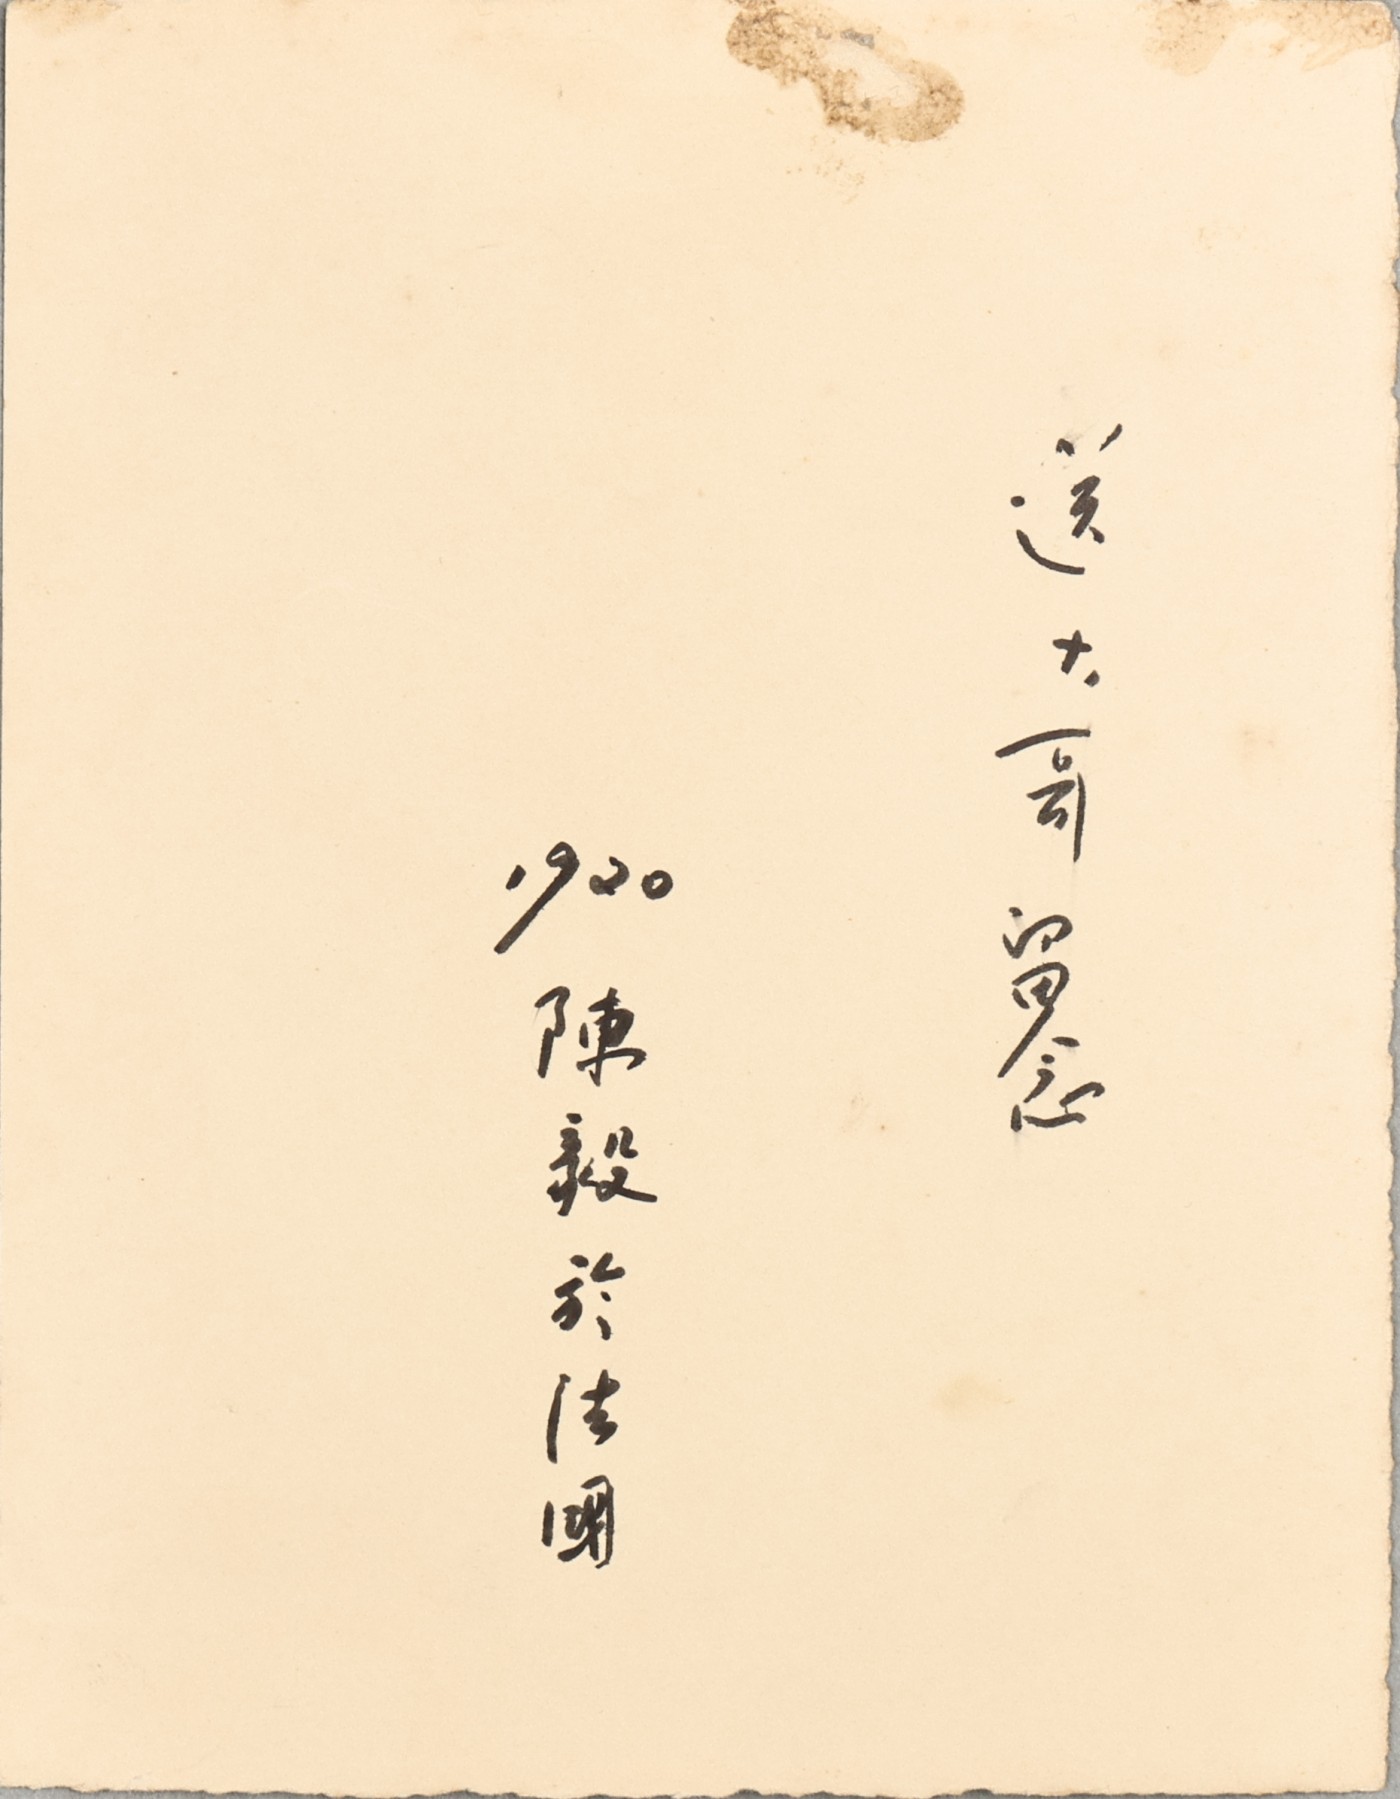 送大哥留念
1920陳毅於法國